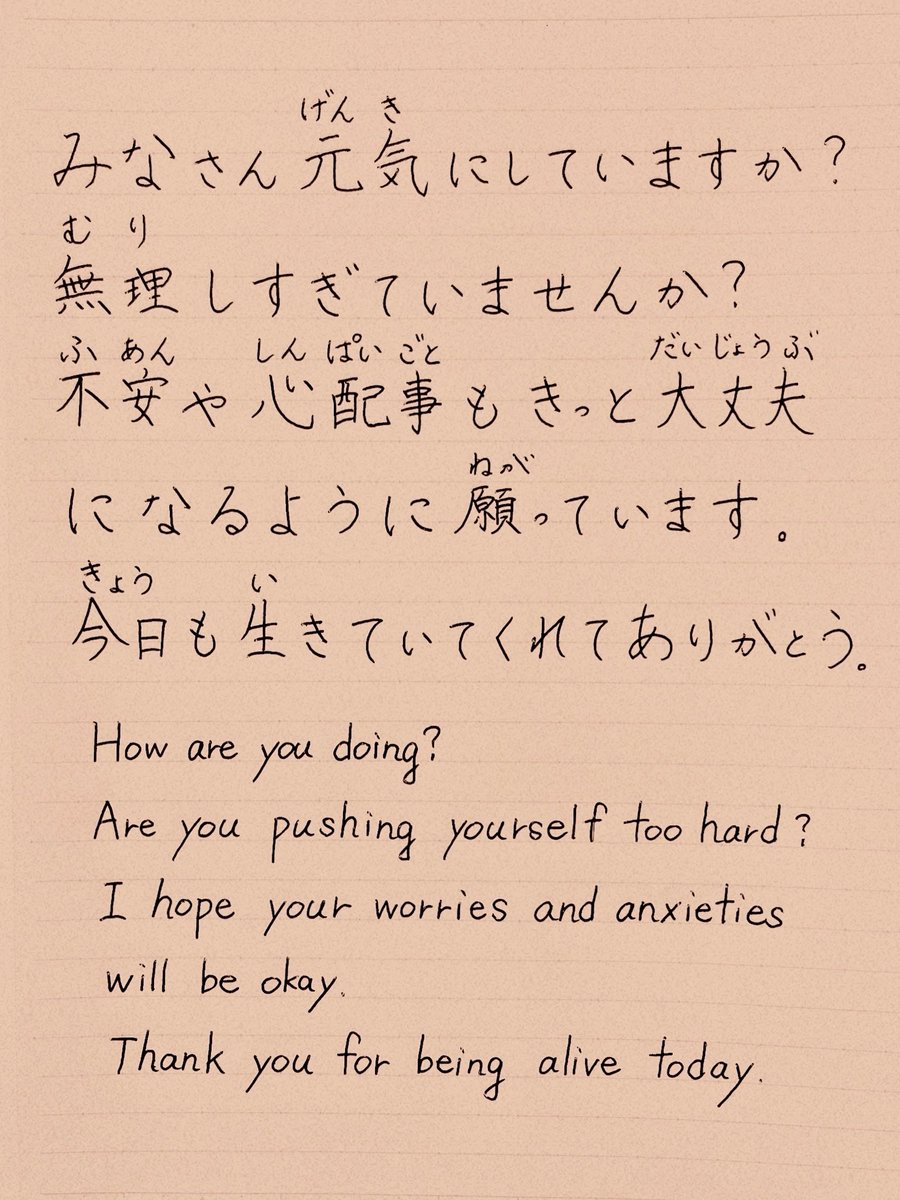 げん き
みなさん元気にしていますか？
む り
無理しすぎていませんか？
ふ あん しん ぱい ごと だい じょう ぶ
不安や心配事もきっと大丈夫
ねが
になるように願っています。
きょう い
今日も生きていてくれてありがとう。
How are you doing?
Are you pushing yourself too hard?
I hope your worries and anxieties
will be okay.
Thank you for being alive today.